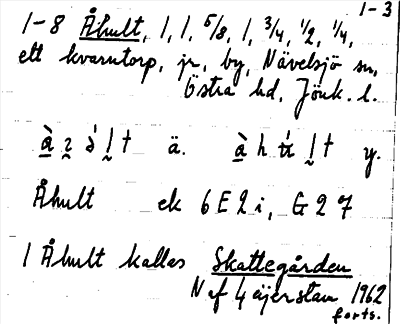 1-3
1-8 Åhult, 1, 1, 5/8, 1, 3/4, 1/2, 1/4,
ett kvarntorp, jr, by, Nävelsjö sn,
Östra hd, Jönk. l.
ä. y.
Åhult ek 6E2i, G27
1 Åhult kallas Skattegården
N af 4 äjerstan 1962
forts.